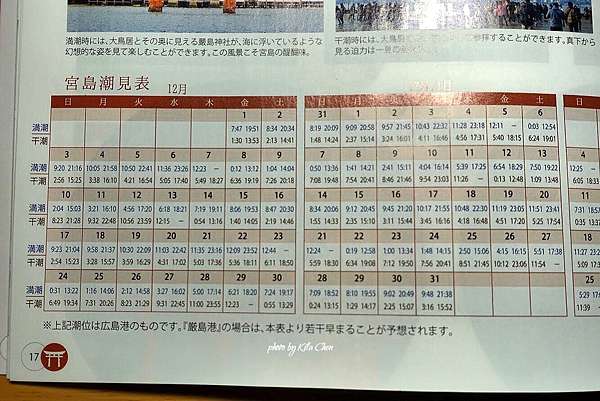 満潮時には、大鳥居とその奥に見える厳島神社が、海に浮いているような
幻想的な姿を見て楽しむことができます。この風景こそ宮島の醍醐味。
宮島潮見表 12月
日 月 火 水 木 金 土
1 2
満潮 7:47 19:51 8:34 20:34
干潮 1:30 13:53 2:13 14:41
3 4 5 6 7 8 9
満潮 9:20 21:16 10:05 21:58 10:50 22:41 11:36 23:26 12:23 － 0:12 13:12 1:04 14:04
干潮 2:56 15:25 3:38 16:10 4:21 16:54 5:05 17:40 5:49 18:27 6:36 19:19 7:26 20:18
10 11 12 13 14 15 16
満潮 2:04 15:03 3:21 16:10 4:56 17:20 6:18 18:21 7:19 19:11 8:06 19:53 8:47 20:30
干潮 8:23 21:28 9:32 22:48 10:56 23:59 12:15 － 0:54 13:16 1:40 14:05 2:19 14:46
17 18 19 20 21 22 23
満潮 9:23 21:04 9:58 21:37 10:30 22:09 11:03 22:42 11:35 23:16 12:09 23:52 12:44 －
干潮 2:54 15:23 3:28 15:57 3:59 16:29 4:31 17:02 5:03 17:36 5:36 18:11 6:11 18:50
24 25 26 27 28 29 30
満潮 0:31 13:22 1:16 14:06 2:12 14:58 3:27 16:02 5:00 17:14 6:21 18:20 7:24 19:17
干潮 6:49 19:34 7:31 20:26 8:23 21:29 9:31 22:45 11:00 23:55 12:23 － 0:55 13:29
干潮時には、
見る迫力は一
することができます。真下から
日 月 火 水 木 金 土
31 1 2 3 4 5 6
8:19 20:09 9:09 20:58 9:57 21:45 10:43 22:32 11:28 23:18 12:11 － 0:03 12:54
1:48 14:24 2:37 15:14 3:24 16:01 4:11 16:46 4:56 17:31 5:40 18:15 6:24 19:01
7 8 9 10 11 12 13
0:50 13:36 1:41 14:21 2:41 15:11 4:04 16:14 5:39 17:25 6:54 18:29 7:50 19:22
7:08 19:48 7:54 20:41 8:46 21:46 9:54 23:03 11:26 － 0:13 12:48 1:09 13:48
14 15 16 17 18 19 20
8:34 20:06 9:12 20:45 9:45 21:20 10:17 21:55 10:48 22:30 11:19 23:05 11:51 23:41
1:55 14:33 2:35 15:10 3:11 15:44 3:45 16:16 4:18 16:48 4:51 17:20 5:25 17:54
21 22 23 24 25 26 27
12:24 － 0:19 12:58 1:00 13:34 1:48 14:15 2:50 15:06 4:15 16:15 5:51 17:38
5:59 18:30 6:34 19:08 7:12 19:50 7:56 20:41 8:51 21:45 10:12 23:06 11:54 －
28 29 30 31
7:09 18:52 8:10 19:55 9:02 20:49 9:48 21:38
0:24 13:15 1:29 14:17 2:25 15:09 3:15 15:55
※上記潮位は広島港のものです。『厳島港』の場合は、本表より若干早まることが予想されます。
photo by Kita Chen
17